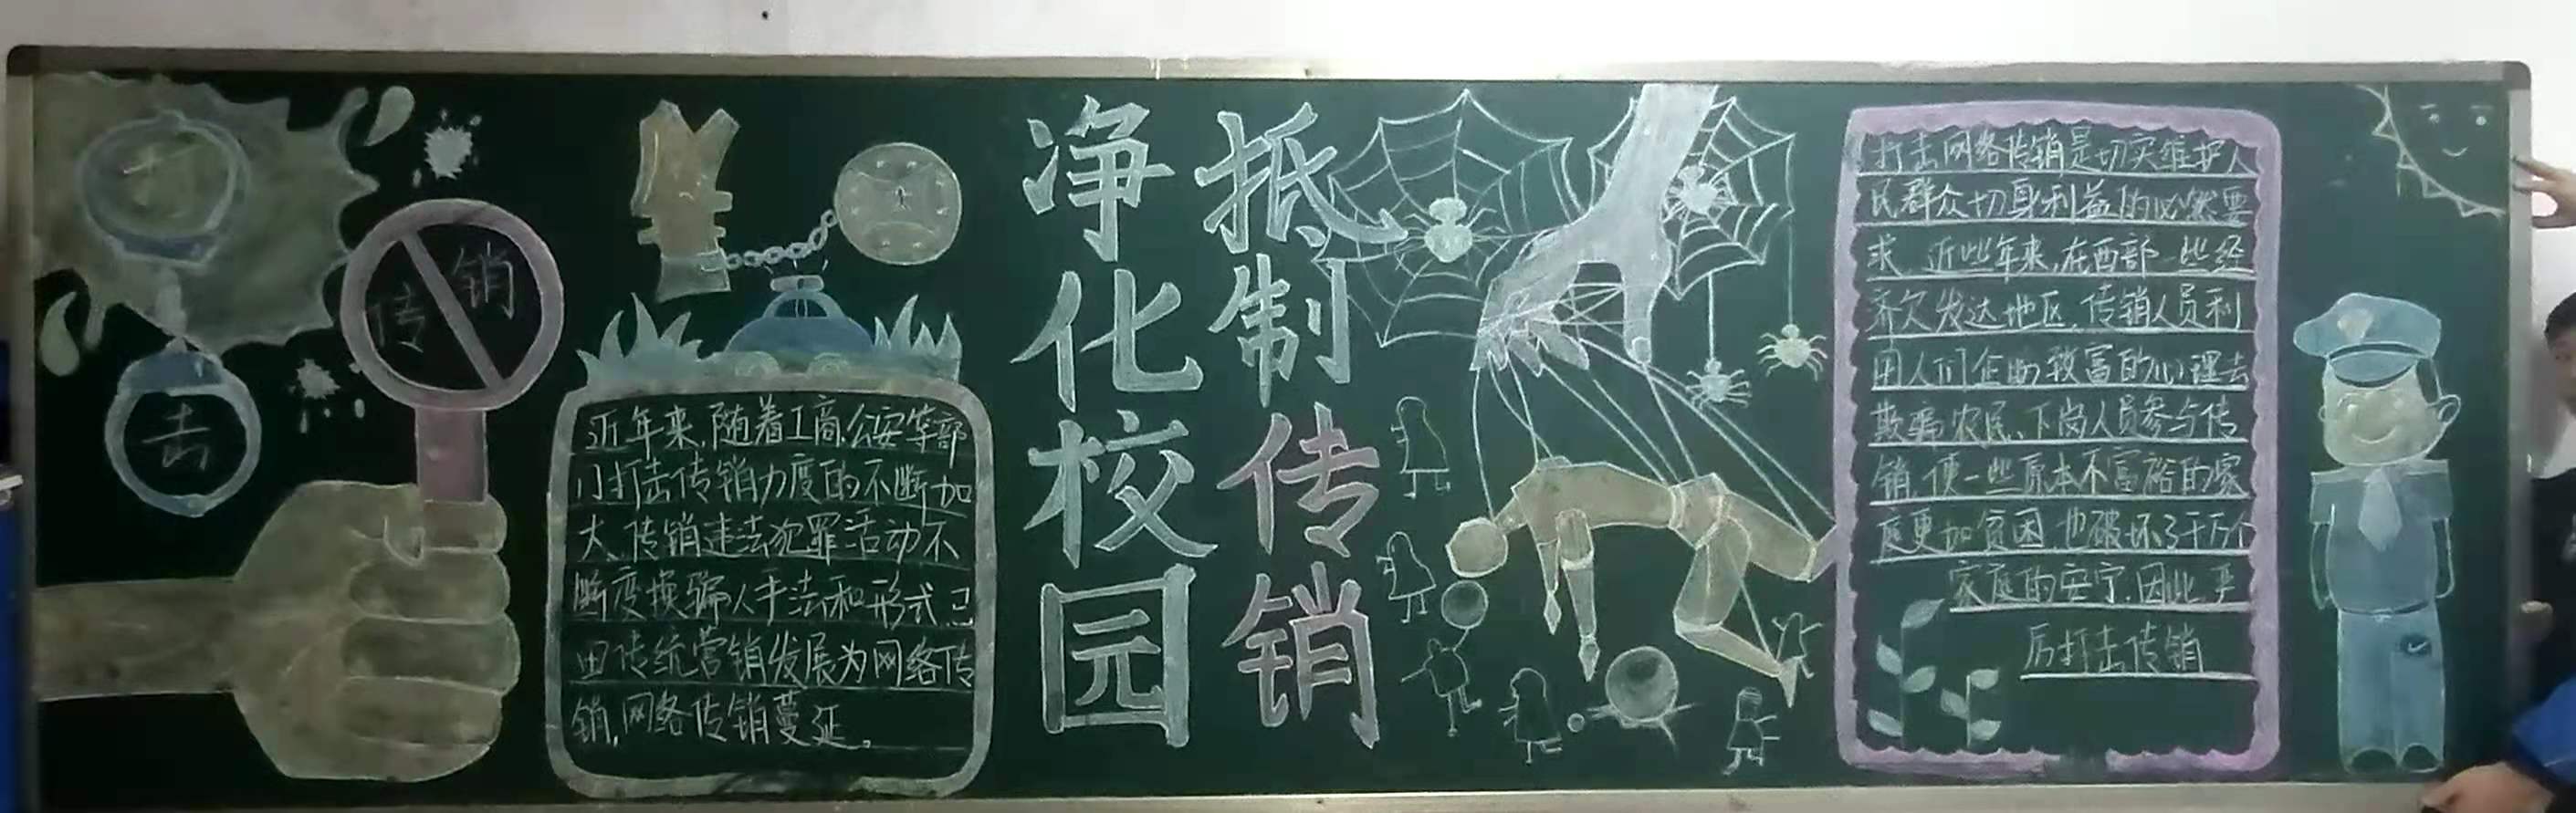 打
击
传
销
近年来,随着工商、公安等部
门打击传销力度的不断加
大,传销违法犯罪活动不
断变换骗人手法和形式,已
由传统营销发展为网络传
销,网络传销蔓延。
抵制传销
净化校园
打击网络传销是切实维护人
民群众切身利益的必然要
求 近些年来,在西部一些经
济欠发达地区,传销人员利
用人们企盼致富的心理去
欺骗农民、下岗人员参与传
销,使一些原本不富裕的家
庭更加贫困,也破坏了千万个
家庭的安宁,因此,严
厉打击传销